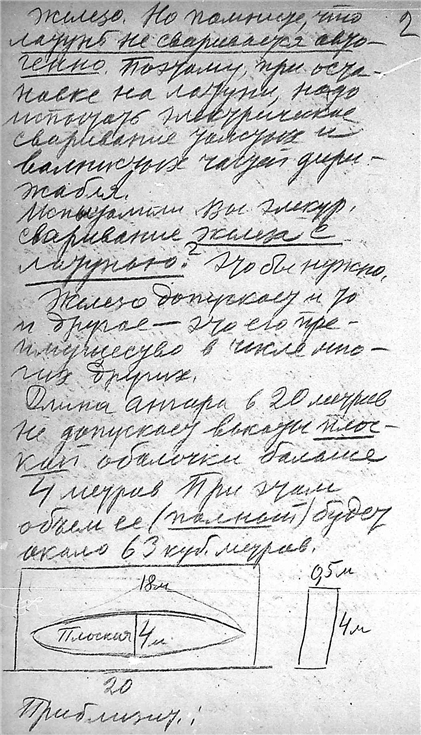 2
железо. Но помните, что
латунь не сваривается авто-
генно. Поэтому, при оста-
новке на латуни, надо
испытать электрическое
сваривание толстых и
волнистых частей дири-
жабля.
Испытали ли Вы электр.
сваривание железа с
латунью? Это бы нужно.
Железо допускает и то
и другое — это его пре-
имущество в числе мно-
гих других.
Длина ангара в 20 метров
не допускает высоты плос-
кой оболочки больше
4 метров При этом
объем ее (полной) будет
около 63 куб. метров.
18м
Плоская 4м
20
0,5м
4м
Приблизит.: